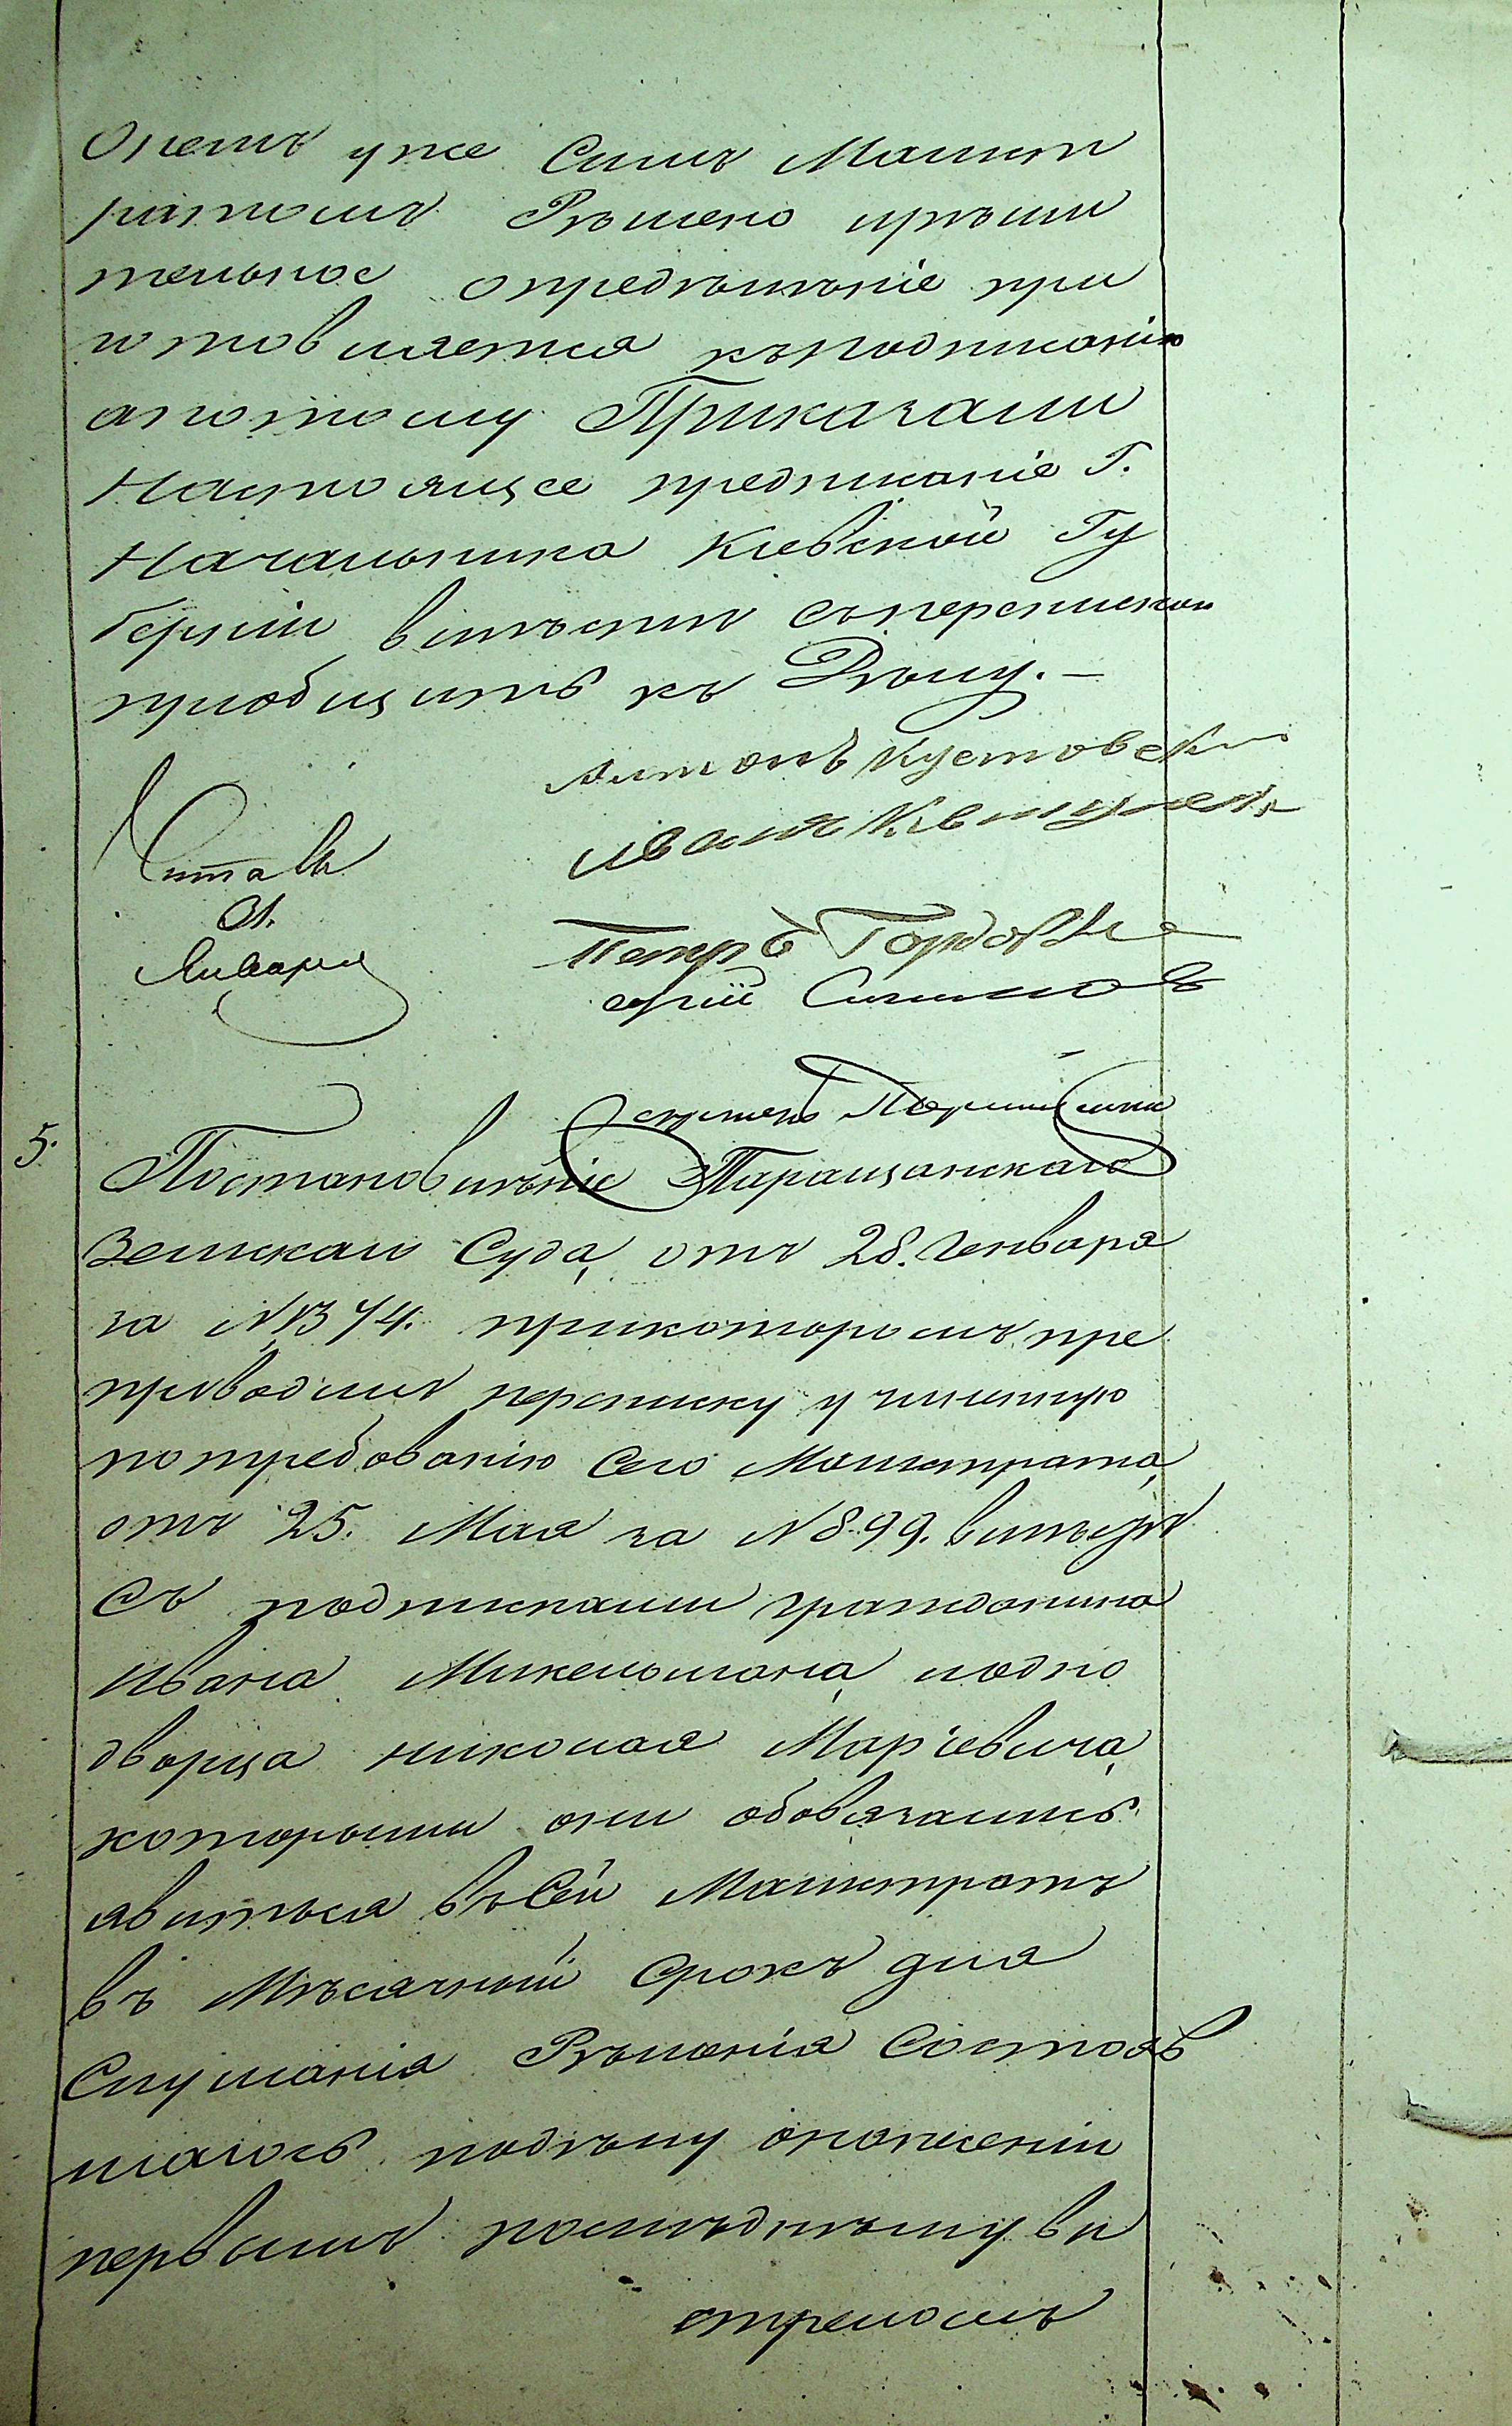 Онемъ уже Симъ Магист
ратомъ Рѣшено и рѣши
тельное опредѣлѣніе при
готовляется къ подписанію
а потому Приказали
Настоящее предписаніе Г.
Начальника Кіевской Гу
берніи вмѣстѣ съ перепискою
пріобщить къ Дѣлу. —
Антонъ Кустовскій
Иванъ
Читалъ
31.
Января
Петръ
Секретарь
5.
Постановлѣніе Таращанскаго
Земскаго Суда, отъ 28. Генваря
за № 1374. при которомъ пре
провождая переписку учиненную
по требованію Сего Магистрата,
отъ 25. Мая за № 899. вмѣстѣ
Съ подписками гражданина
Ивана Микельмана, и одно
дворца Николая Маріевича,
которыми они обовязались
явитьса въ Сей Магистратъ
въ Мѣсячный Срокъ для
Слушанія Рѣшенія Состояв
шагось по дѣлу о нанесеніи
первымъ послѣднѣму вы
стреломъ